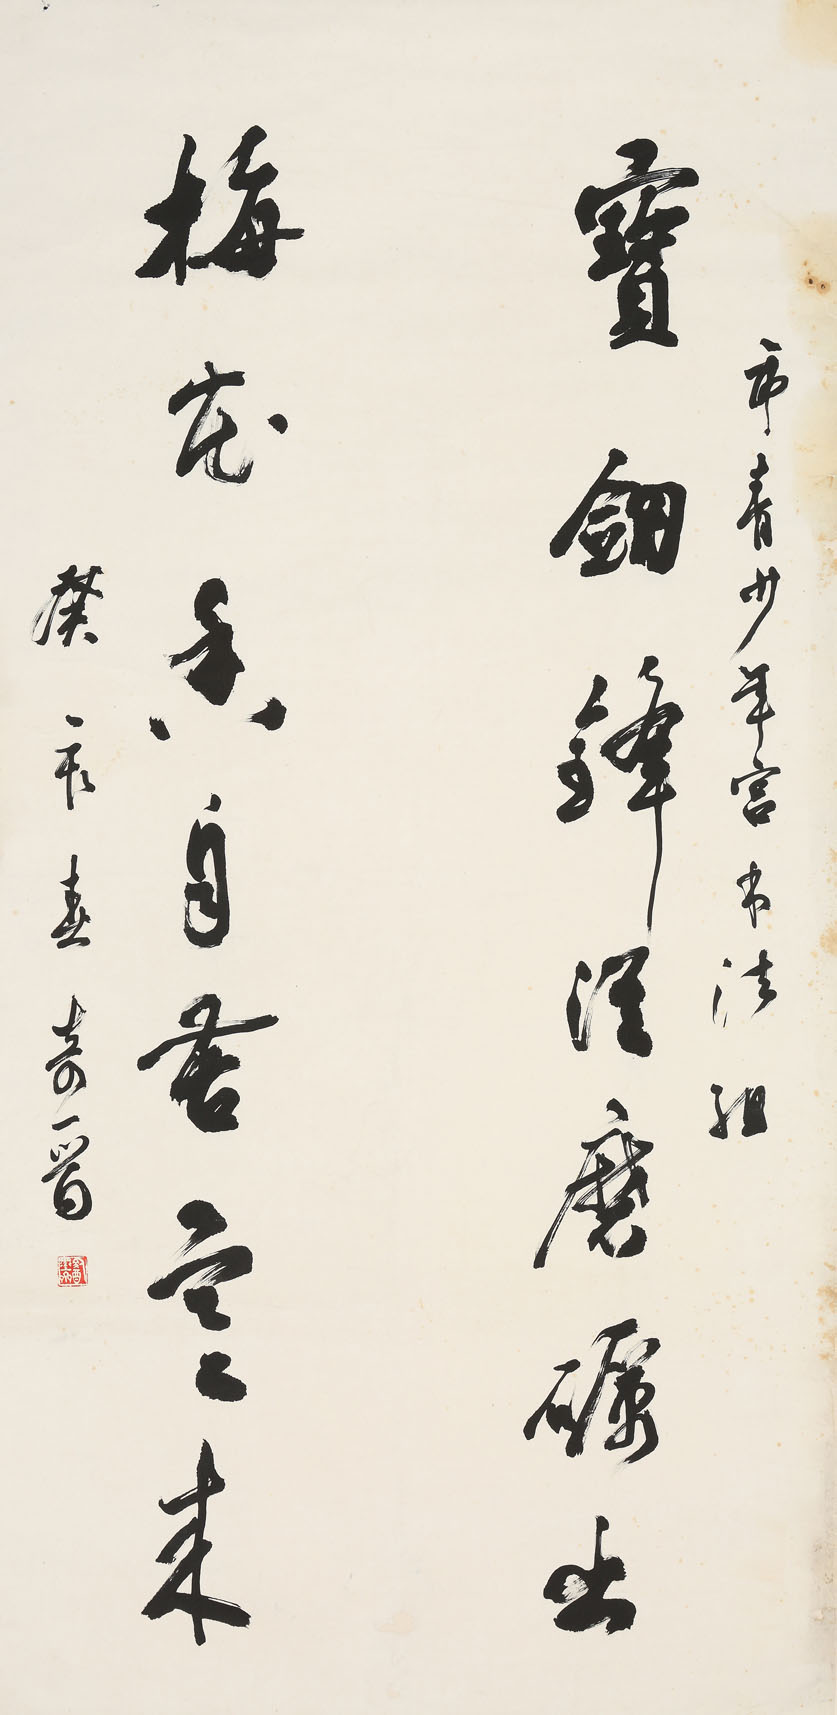 市青少年宫书法组
寶劍鋒從磨礪出
梅花香自苦寒来
癸亥春 奇晋